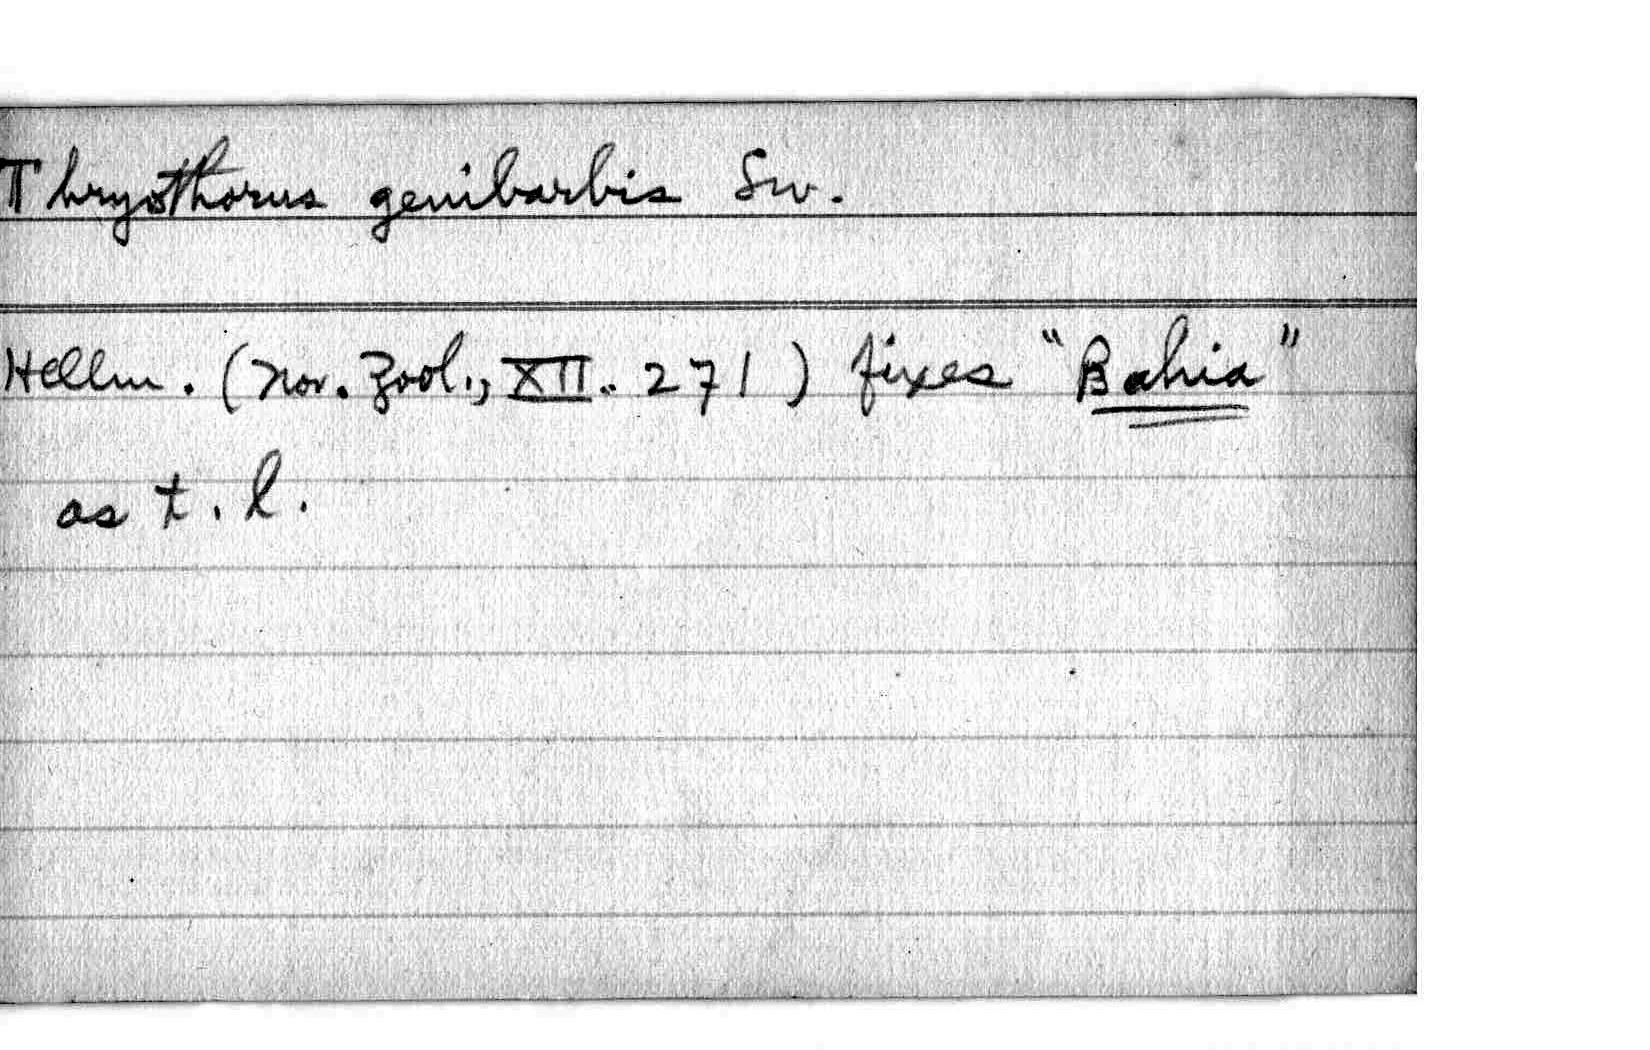 Thryothorus genibarbis Sw.
Hellm. (Nov. Zool., XII.. 271) fixes "Bahia"
as t.l.